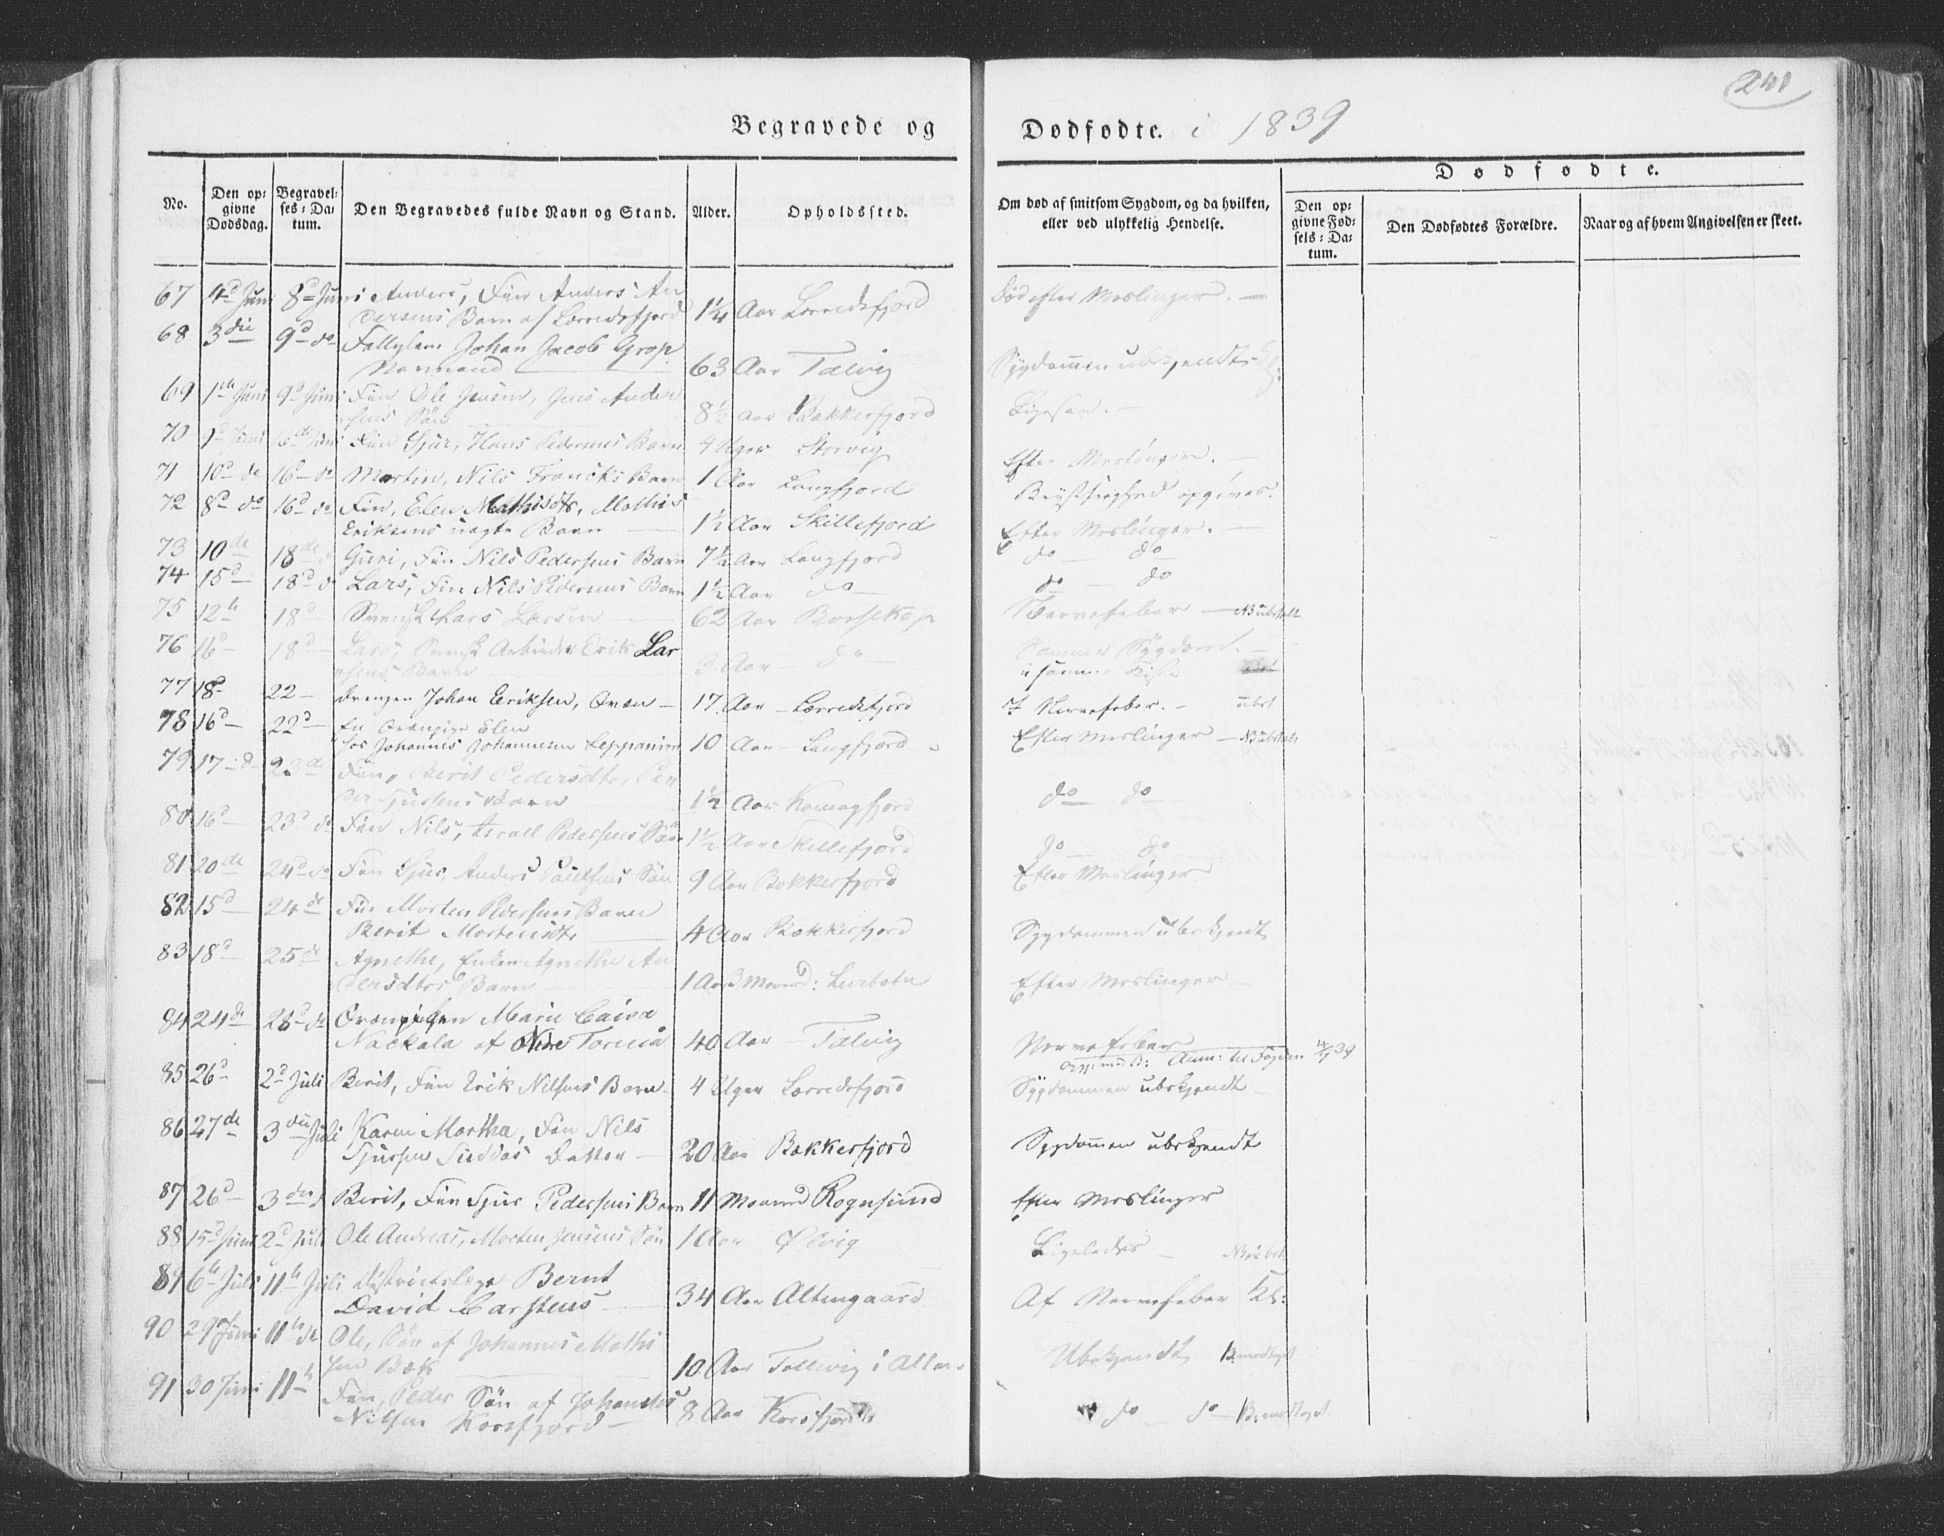 241
Begravede og Dødfødte. i 1839
No.
Den op-
givne
Dødsdag.
Begravel-
ses-Da-
tum.
Den Begravedes fulde Navn og Stand.
Alder.
Opholdssted.
Om død af smitsom Sygdom, og da hvilken,
eller ved ulykkelig Hendelse.
Dødfødte.
Den op-
givne Fød-
sels-Da-
tum.
Den Dødfødtes Forældre.
Naar og af hvem Angivelsen er skeet.
67 4d Juni 8d Juni Anders, Fin Anders An
dersens Barn af Lerredsfjord 1¼ Aar Lerredsfjord Død efter Meslinger. —
68 3die 9d do Johan Jacob Grop
Normand 63 Aar Talvig Sygdommen ubekjendt
69 1ste Juni 9d Juni Fin Ole Jensen, Jens Ander
sens Søn 8½ Aar Bekkerfjord Ligesaa. —
70 Juni 16de Juni Fin Sjur, Hans Pedersens Barn 4 Uger Storvig Efter Meslinger. —
71 10d de 16d do Martin, Nils Francks Barn 1 Aar Langfjord Brystsyghed opgives.
72 8d do 16d do Fin, Elen Mathisdtr, Mathis
Eriksens uægte Barn 1½ Aar Skillefjord Efter Meslinger. —
73 10de 18de Guri, Fin Nils Pedersens Barn 7½ Aar Langfjord do do
74 15d 18d Lars, Fin Nils Pedersens Barn 1½ Aar do do — do
75 12te 18d Svensk Lars Larsen 62 Aar Bossekop Nervefeber — NB ubet
76 16d 18d Lars, Svensk Arbeider Erik Lar
sens Barn 3 Aar — do — Samme Sygdom. —
i samme Kiste
77 18d 22 — Drengen Johan Eriksen, Qvæn — 17 Aar — Lerredsfjord Nervefeber. — ubet
78 16d — 22d — En Qvænpige Elen
hos Johannes Johannesen Leppanim 10 Aar — Langfjord Efter Meslinger — NB ubet
79 17 d 23d Fin, Berit Pedersdtr, Pe
der Barn 1½ Aar Komagfjord do do
80 16d 23d do Fin Nils, Israel Pedersens Søn 1½ Aar Skillefjord do do
81 20de 24d do Fin Sjur, Anders Poulsens Søn 9 Aar Bekkerfjord Efter Meslinger
82 15d 24de Fin Morten Pedersens Barn
Berit Mortensdtr 4 Aar Bekkerfjord Sygdommen ubekjendt
83 18d 25de Agnethe, Enken Agnethe An
dersdtrs Barn — 1 Aar 3 Maaned: Lerbotn Efter Meslinger —
84 24de 28d do Qvænpigen Marie Caisa
Nackala af Nedre Torneå 40 Aar — Talvig Nervefeber
Anm: til Fogden 4/7 39
85 26d 2d Juli Berit, Fin Erik Nilsens Barn 4 Uger Lerredsfjord Sygdommen ubekjendt —
86 27de 3die Juli Karen Martha, Fin Nils
Sjursen Datter — 20 Aar Bekkerfjord Sygdommen ubekjendt
87 26d 3die Berit, Fin Sjur Pedersens Barn 11 Maaned Rognsund Efter Meslinger
88 15d Juni 2d Juli Ole Andreas, Morten Jensens Søn 1 Aar Ølvig Ligeledes — NB ubet
89 6te Juli 11te Juli Districtslæge Bernt
David Carstens — 34 Aar Altengaard Af Nervefeber
90 29d Juni 11te de Ole, Søn af Johannes Mathi
sen Bæk 10 Aar Tallvig i Alten Ubekjendt
91 30 Juni 11te Fin, Peder Søn af Johannes
Nilsen Korsfjord — 8 Aar Korsfjord do — do —